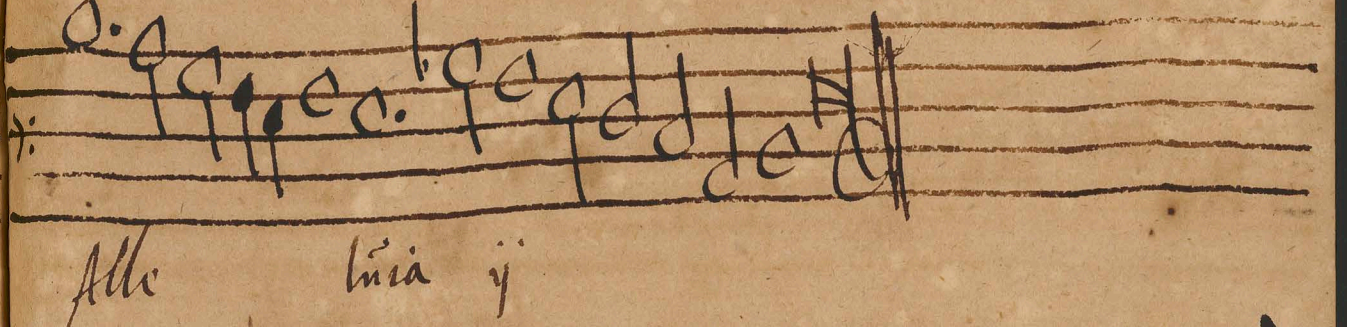 Alle luia ij